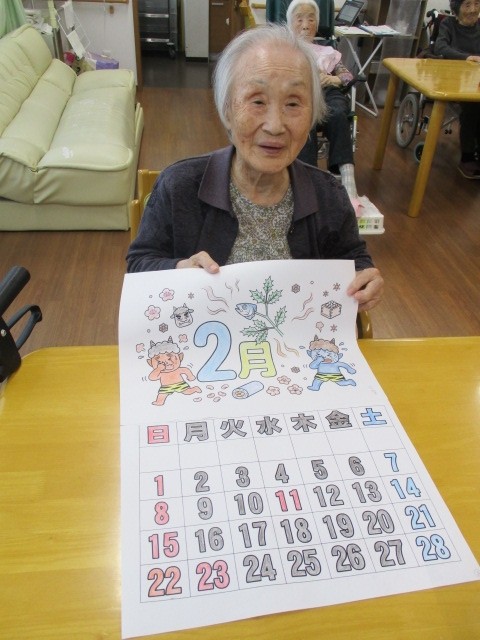 2月
日 月 火 水 木 金 土
1 2 3 4 5 6 7
8 9 10 11 12 13 14
15 16 17 18 19 20 21
22 23 24 25 26 27 28